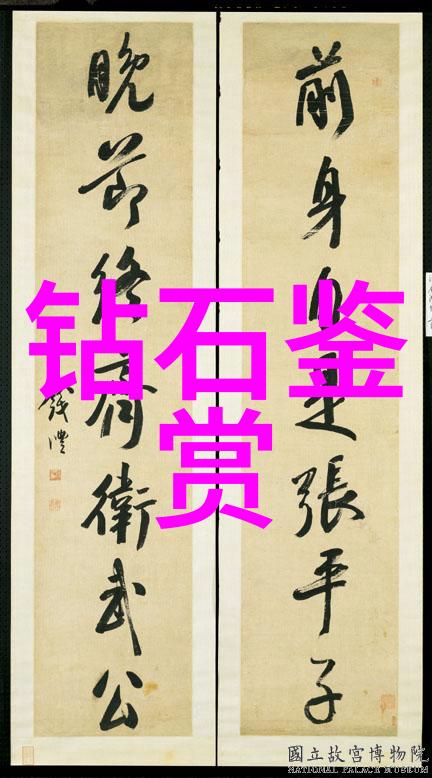 前身自是張平子
晚節終齊衛武公
錢灃
钻石鉴
赏
國立故宮博物院
NATIONAL PALACE MUSEUM